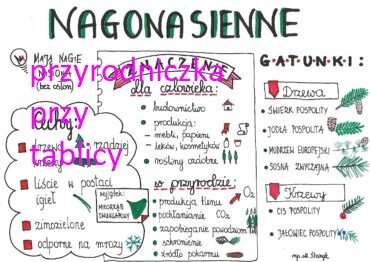 NAGONASIENNE
MAJĄ NAGIE
(bez osłon)
Cechy:
rzadziej
liście w postaci
igieł
wyjątek:
MIŁORZĄB
DWUKLAPOWY
zimozielone
odporne na mrozy
ZNACZENIE
dla człowieka:
budownictwo
produkcja:
- mebli, papieru
- leków, kosmetyków
rośliny ozdobne
w przyrodzie:
produkcja tlenu O2
pochłanianie CO2
zapobieganie powodziom
schronienie
źródło pokarmu
GATUNKI:
Drzewa
ŚWIERK POSPOLITY
JODŁA POSPOLITA
MODRZEW EUROPEJSKI
SOSNA ZWYCZAJNA
Krzewy
CIS POSPOLITY
JAŁOWIEC POSPOLITY
przyrodniczka
przy
tablicy